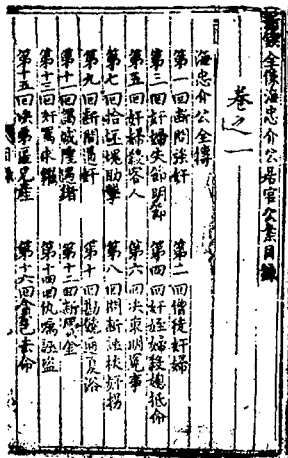 新鐫全像海忠介公居官公案目錄
卷之一
海忠介公全傳
第一回斷問強奸 第二回僧徒奸婦
第三回奸婦失節明節 第四回奸侄婦殺媳抵命
第五回奸婦殺客人 第六回決東明冤事
第七回拾坯塊助擊 第八回問斷誆妓拐
第九回斷問 奸 第十回勘饒通夏浴
第十一回謁城隍遇猪 第十二回斷 金
第十三回奸 第十四回仇囑誣盜
第十五回決弟逼兄產 第十六回 命